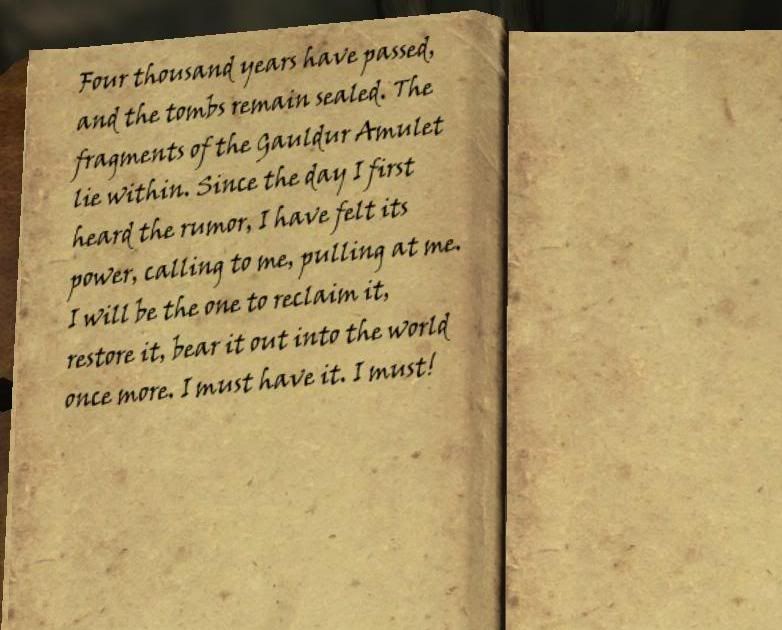 Four thousand years have passed,
and the tombs remain sealed. The
fragments of the Gauldur Amulet
lie within. Since the day I first
heard the rumor, I have felt its
power, calling to me, pulling at me.
I will be the one to reclaim it,
restore it, bear it out into the world
once more. I must have it. I must!